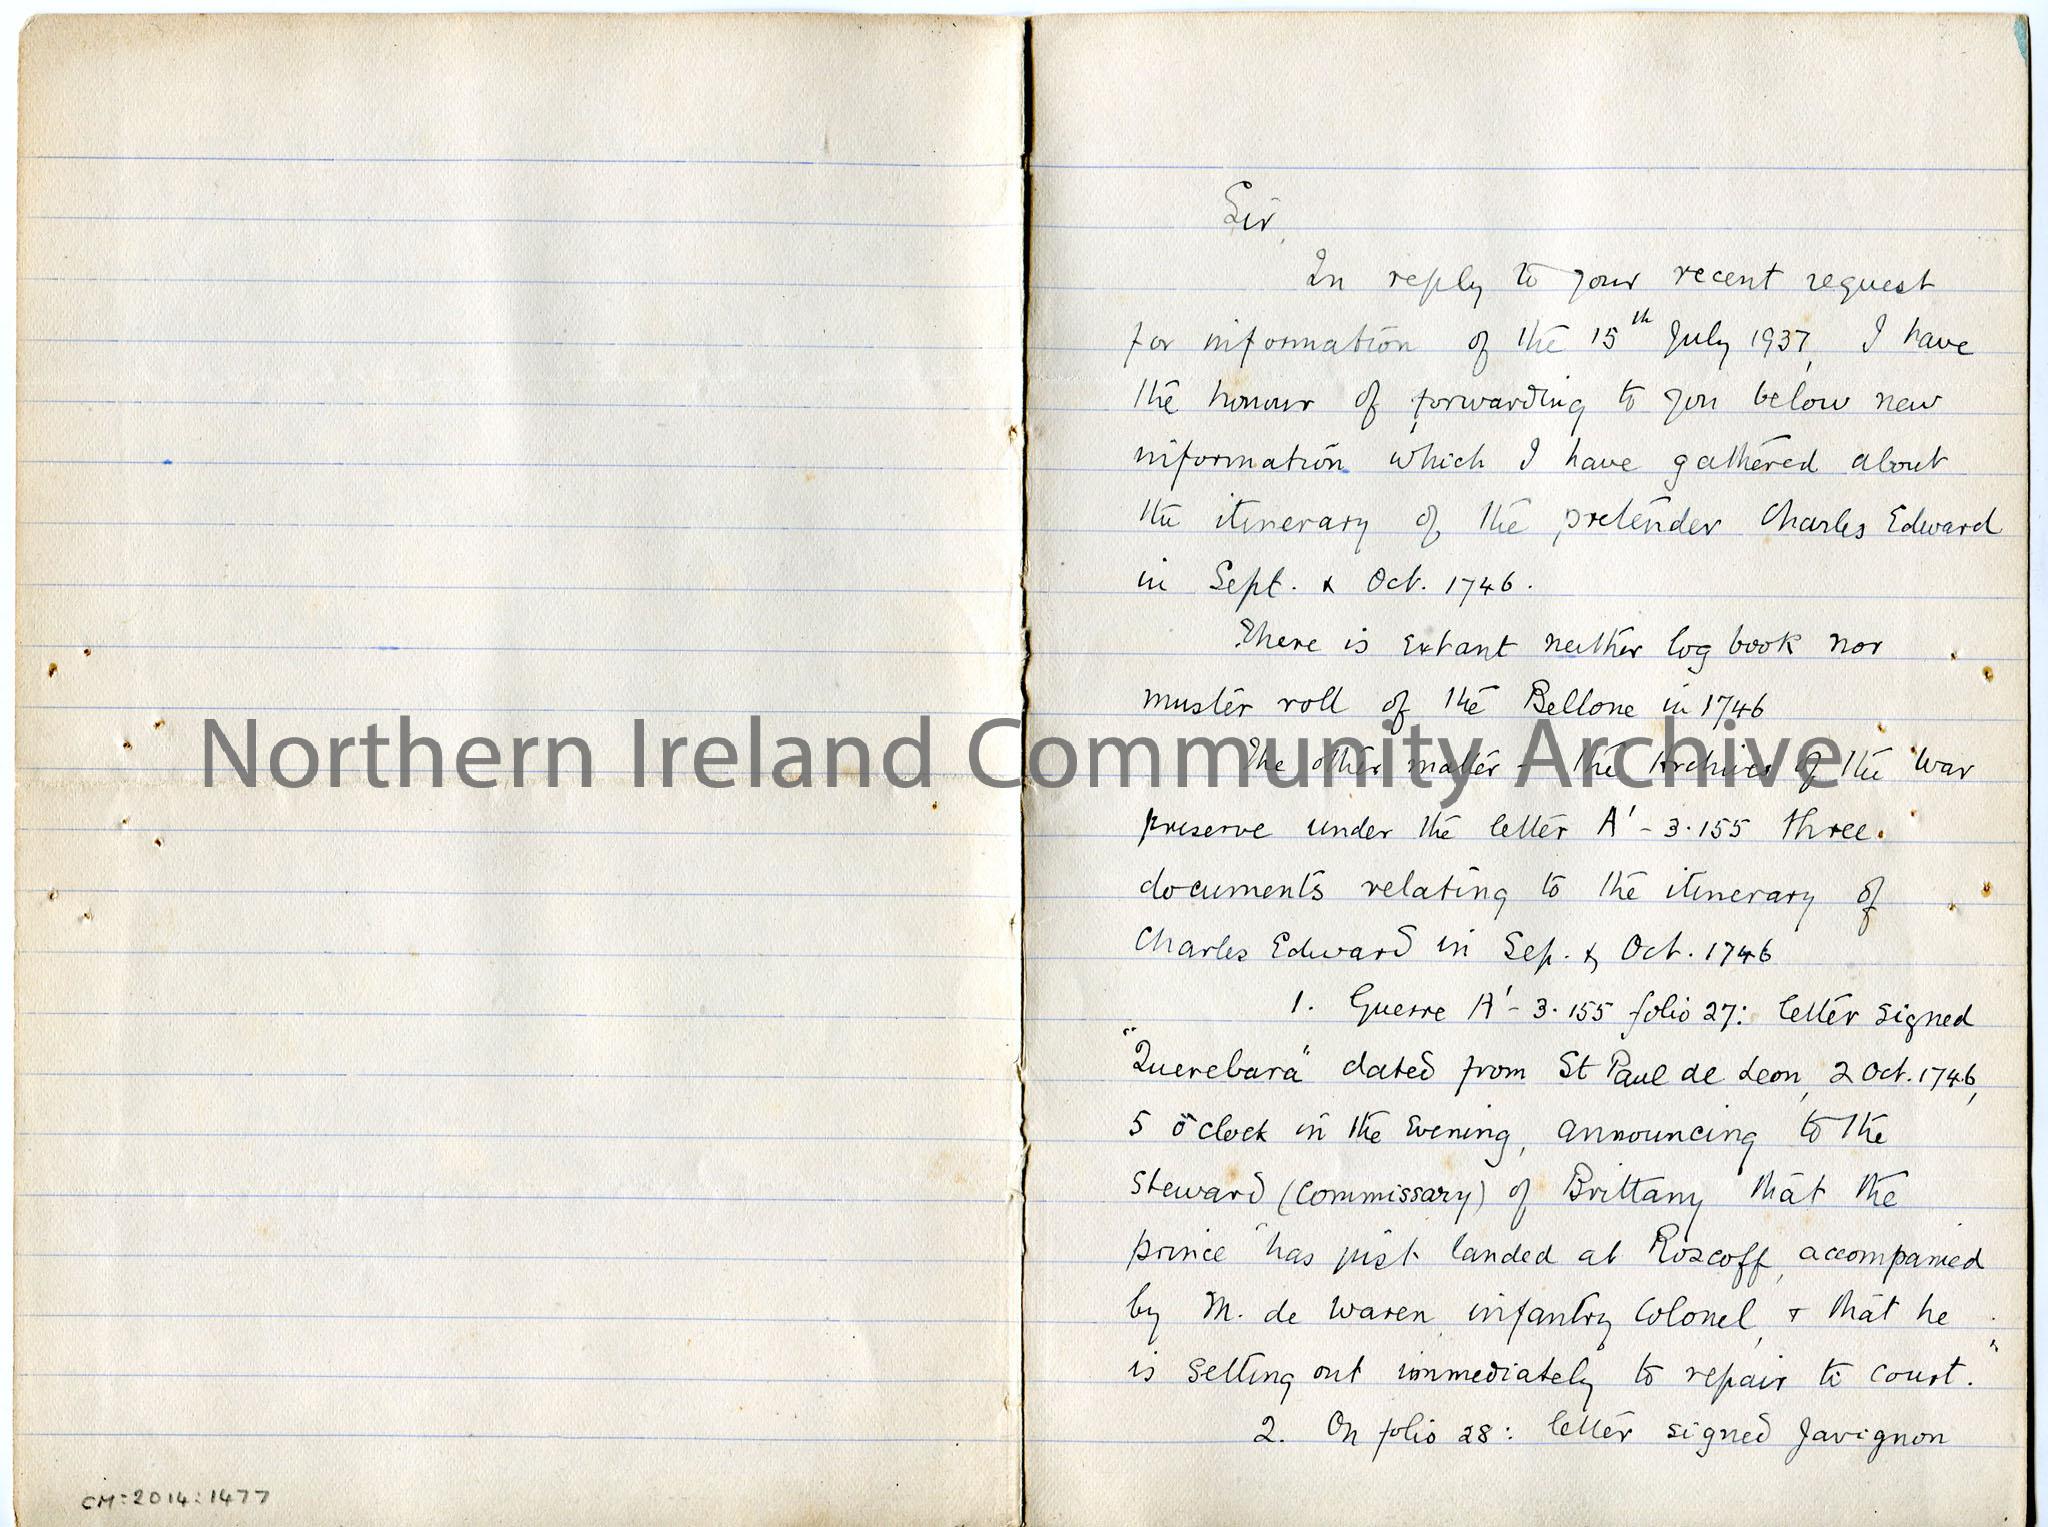 Sir,
In reply to your recent request
for information of the 15th July 1937, I have
the honour of forwarding to you below new
information which I have gathered about
the itinerary of the pretender Charles Edward
in Sept. & Oct. 1746.
There is extant neither log book nor
muster roll of the Bellone in 1746
The other matter - the Archives of the War
preserve under the letter A' - 3.155 three
documents relating to the itinerary of
Charles Edward in Sep. & Oct. 1746
1. Guerre A' - 3.155 folio 27: letter signed
"Querebara" dated from St Paul de Leon, 2 Oct. 1746,
5 o'clock in the evening, announcing to the
Steward (Commissary) of Brittany that the
prince "has just landed at Roscoff, accompanied
by M. de Waren, infantry Colonel, & that he
is setting out immediately to repair to court."
2. On folio 28: letter signed Javignon
Northern Ireland Community Archive
CM:2014:1477